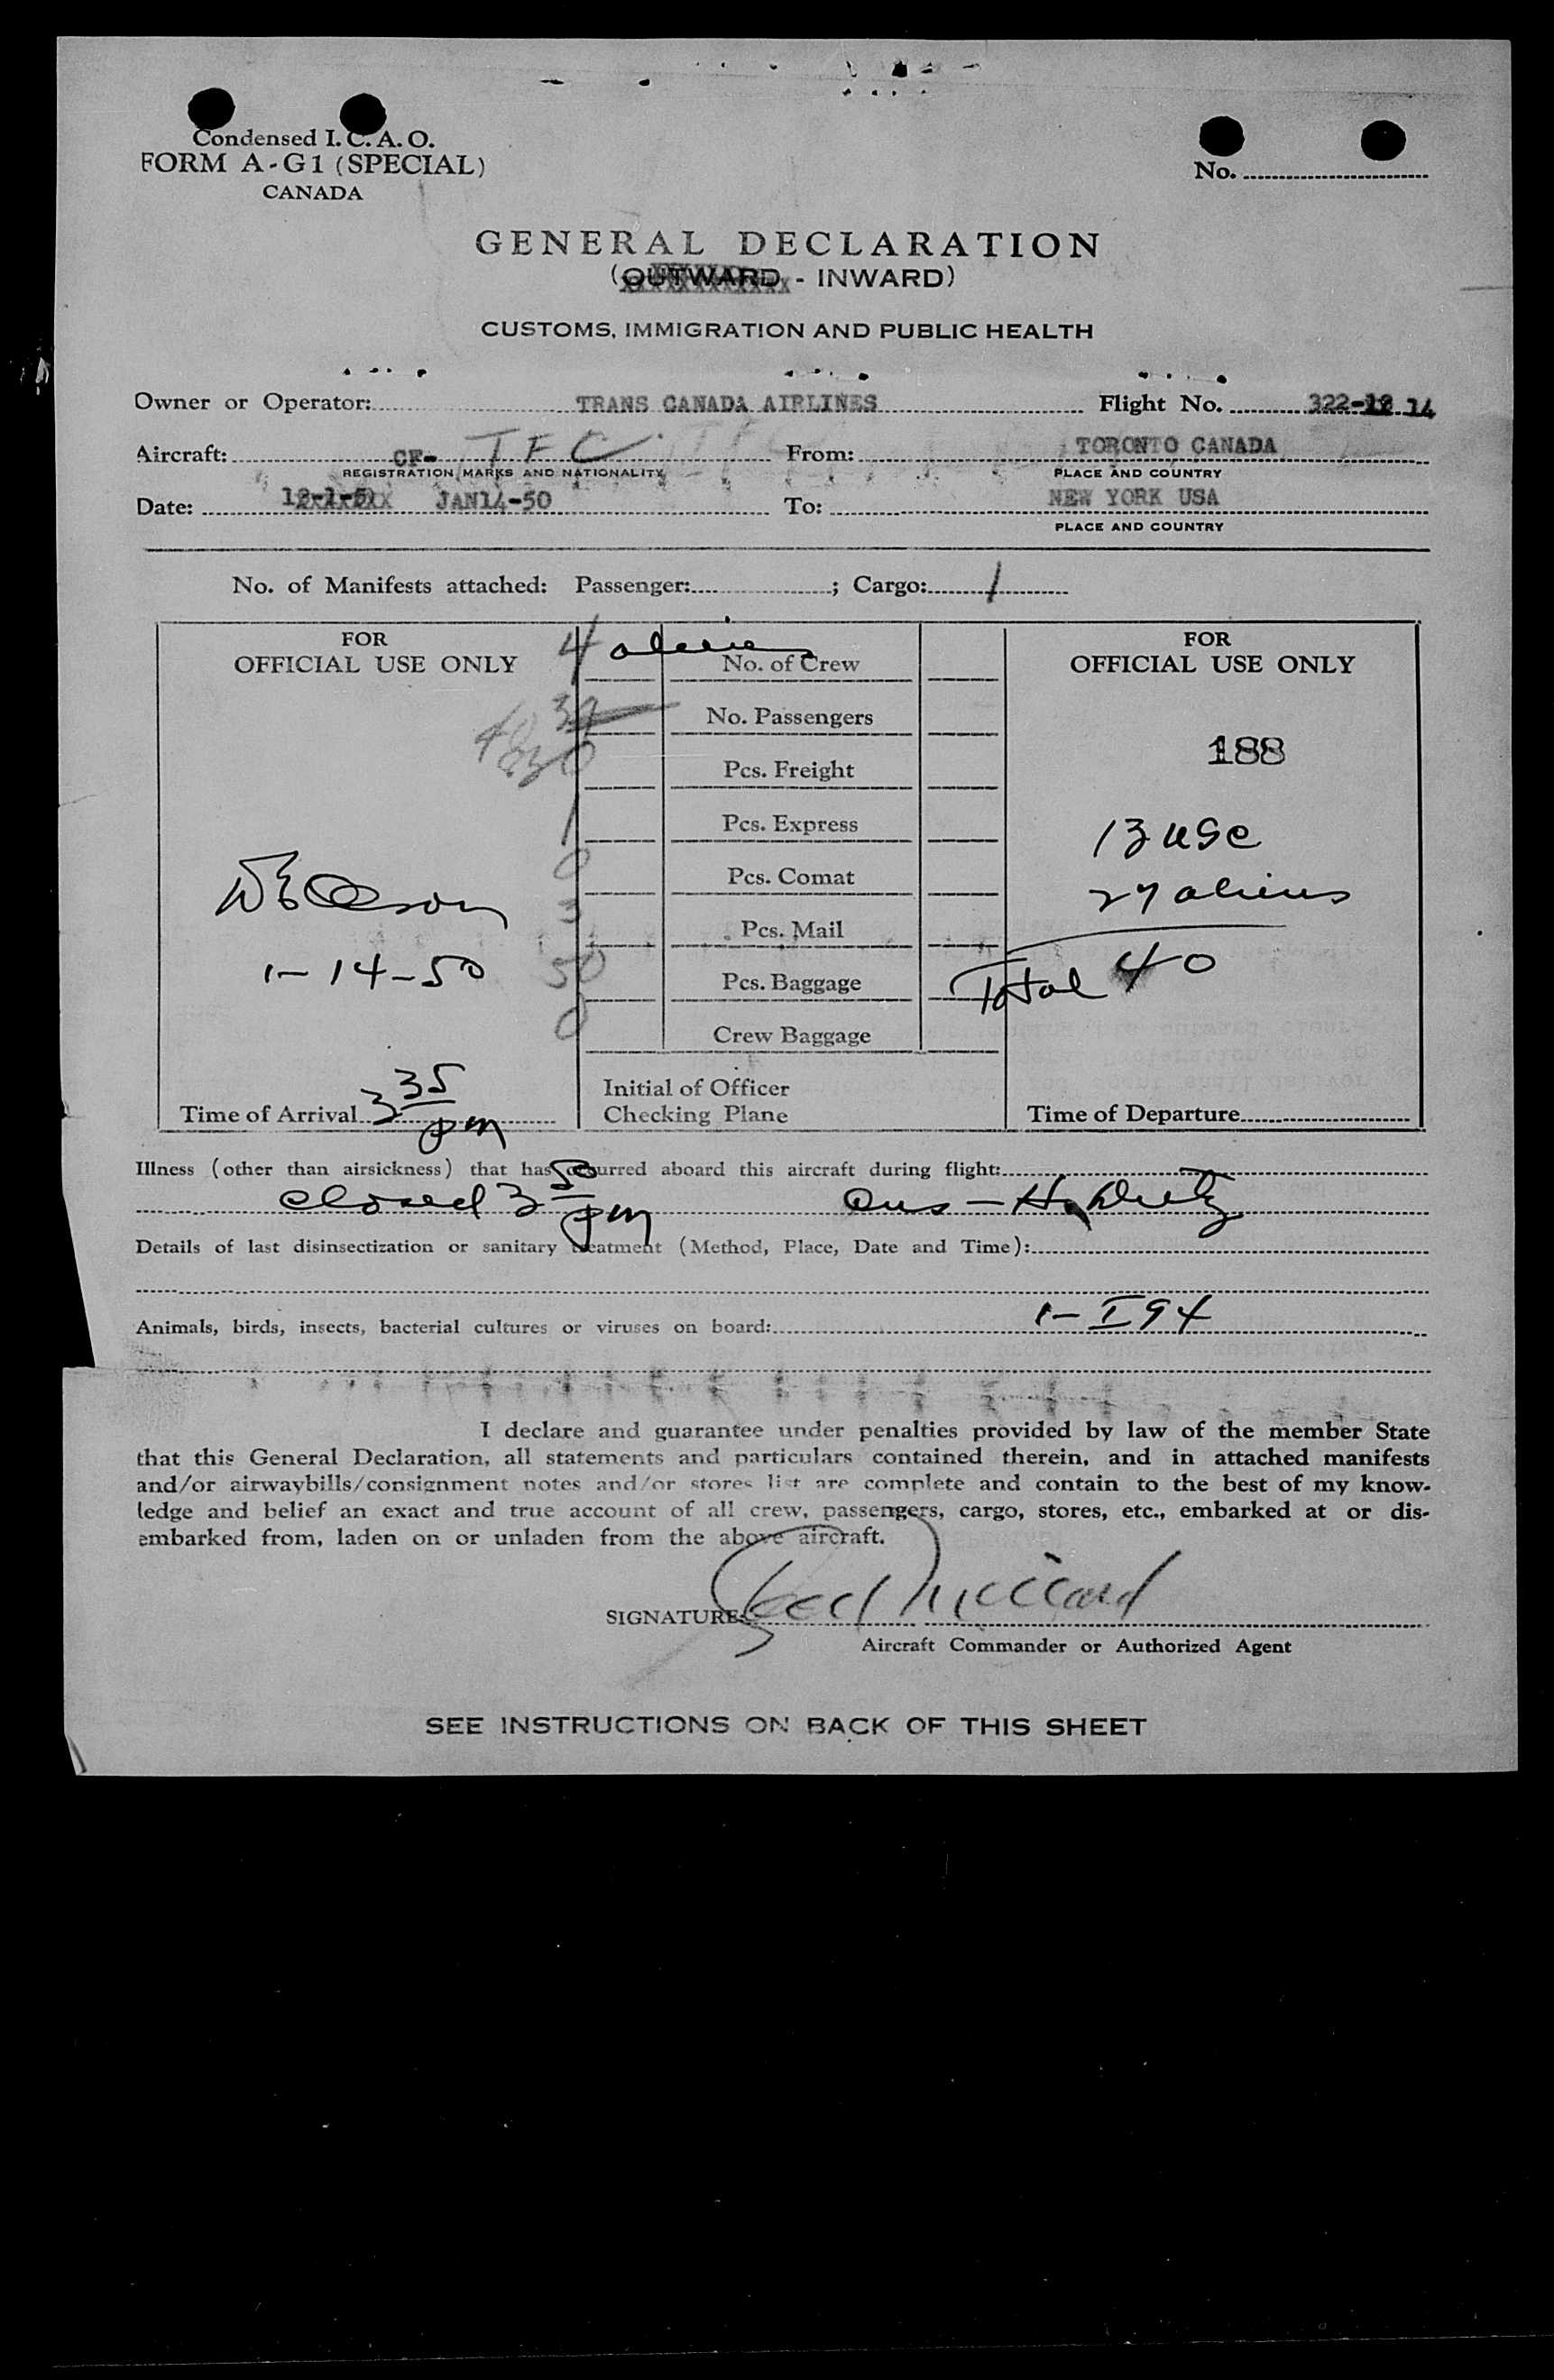 Condensed I. C. A. O.
FORM A-G1 (SPECIAL)
CANADA
No.
GENERAL DECLARATION
(OUTWARD - INWARD)
CUSTOMS, IMMIGRATION AND PUBLIC HEALTH
Owner or Operator: TRANS CANADA AIRLINES Flight No. 322- 14
Aircraft: CF- TFC From: TORONTO CANADA
REGISTRATION MARKS AND NATIONALITY PLACE AND COUNTRY
Date: JAN14-50 To: NEW YORK USA
PLACE AND COUNTRY
No. of Manifests attached: Passenger: ; Cargo: 1
FOR
OFFICIAL USE ONLY
4 aliens
No. of Crew
FOR
OFFICIAL USE ONLY
No. Passengers
40
188
Pcs. Freight
1 Pcs. Express
13 USC
0 Pcs. Comat
27 aliens
3 Pcs. Mail
1-14-50
50 Pcs. Baggage
Total 40
0 Crew Baggage
Time of Arrival 3 35 pm
Initial of Officer
Checking Plane
Time of Departure
Illness (other than airsickness) that has occurred aboard this aircraft during flight:
closed 3 50 pm
Details of last disinsectization or sanitary treatment (Method, Place, Date and Time):
1- I94
Animals, birds, insects, bacterial cultures or viruses on board:
I declare and guarantee under penalties provided by law of the member State
that this General Declaration, all statements and particulars contained therein, and in attached manifests
and/or airwaybills/consignment notes and/or stores list are complete and contain to the best of my know-
ledge and belief an exact and true account of all crew, passengers, cargo, stores, etc., embarked at or dis-
embarked from, laden on or unladen from the above aircraft.
SIGNATURE:
Aircraft Commander or Authorized Agent
SEE INSTRUCTIONS ON BACK OF THIS SHEET